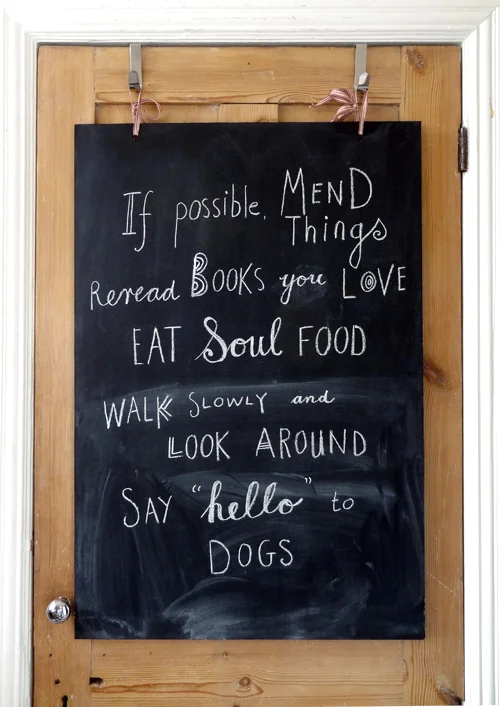 If possible, MEND
Things
Reread BOOKS you LOVE
EAT Soul FOOD
WALK SLOWLY and
LOOK AROUND
SAY "hello" to
DOGS